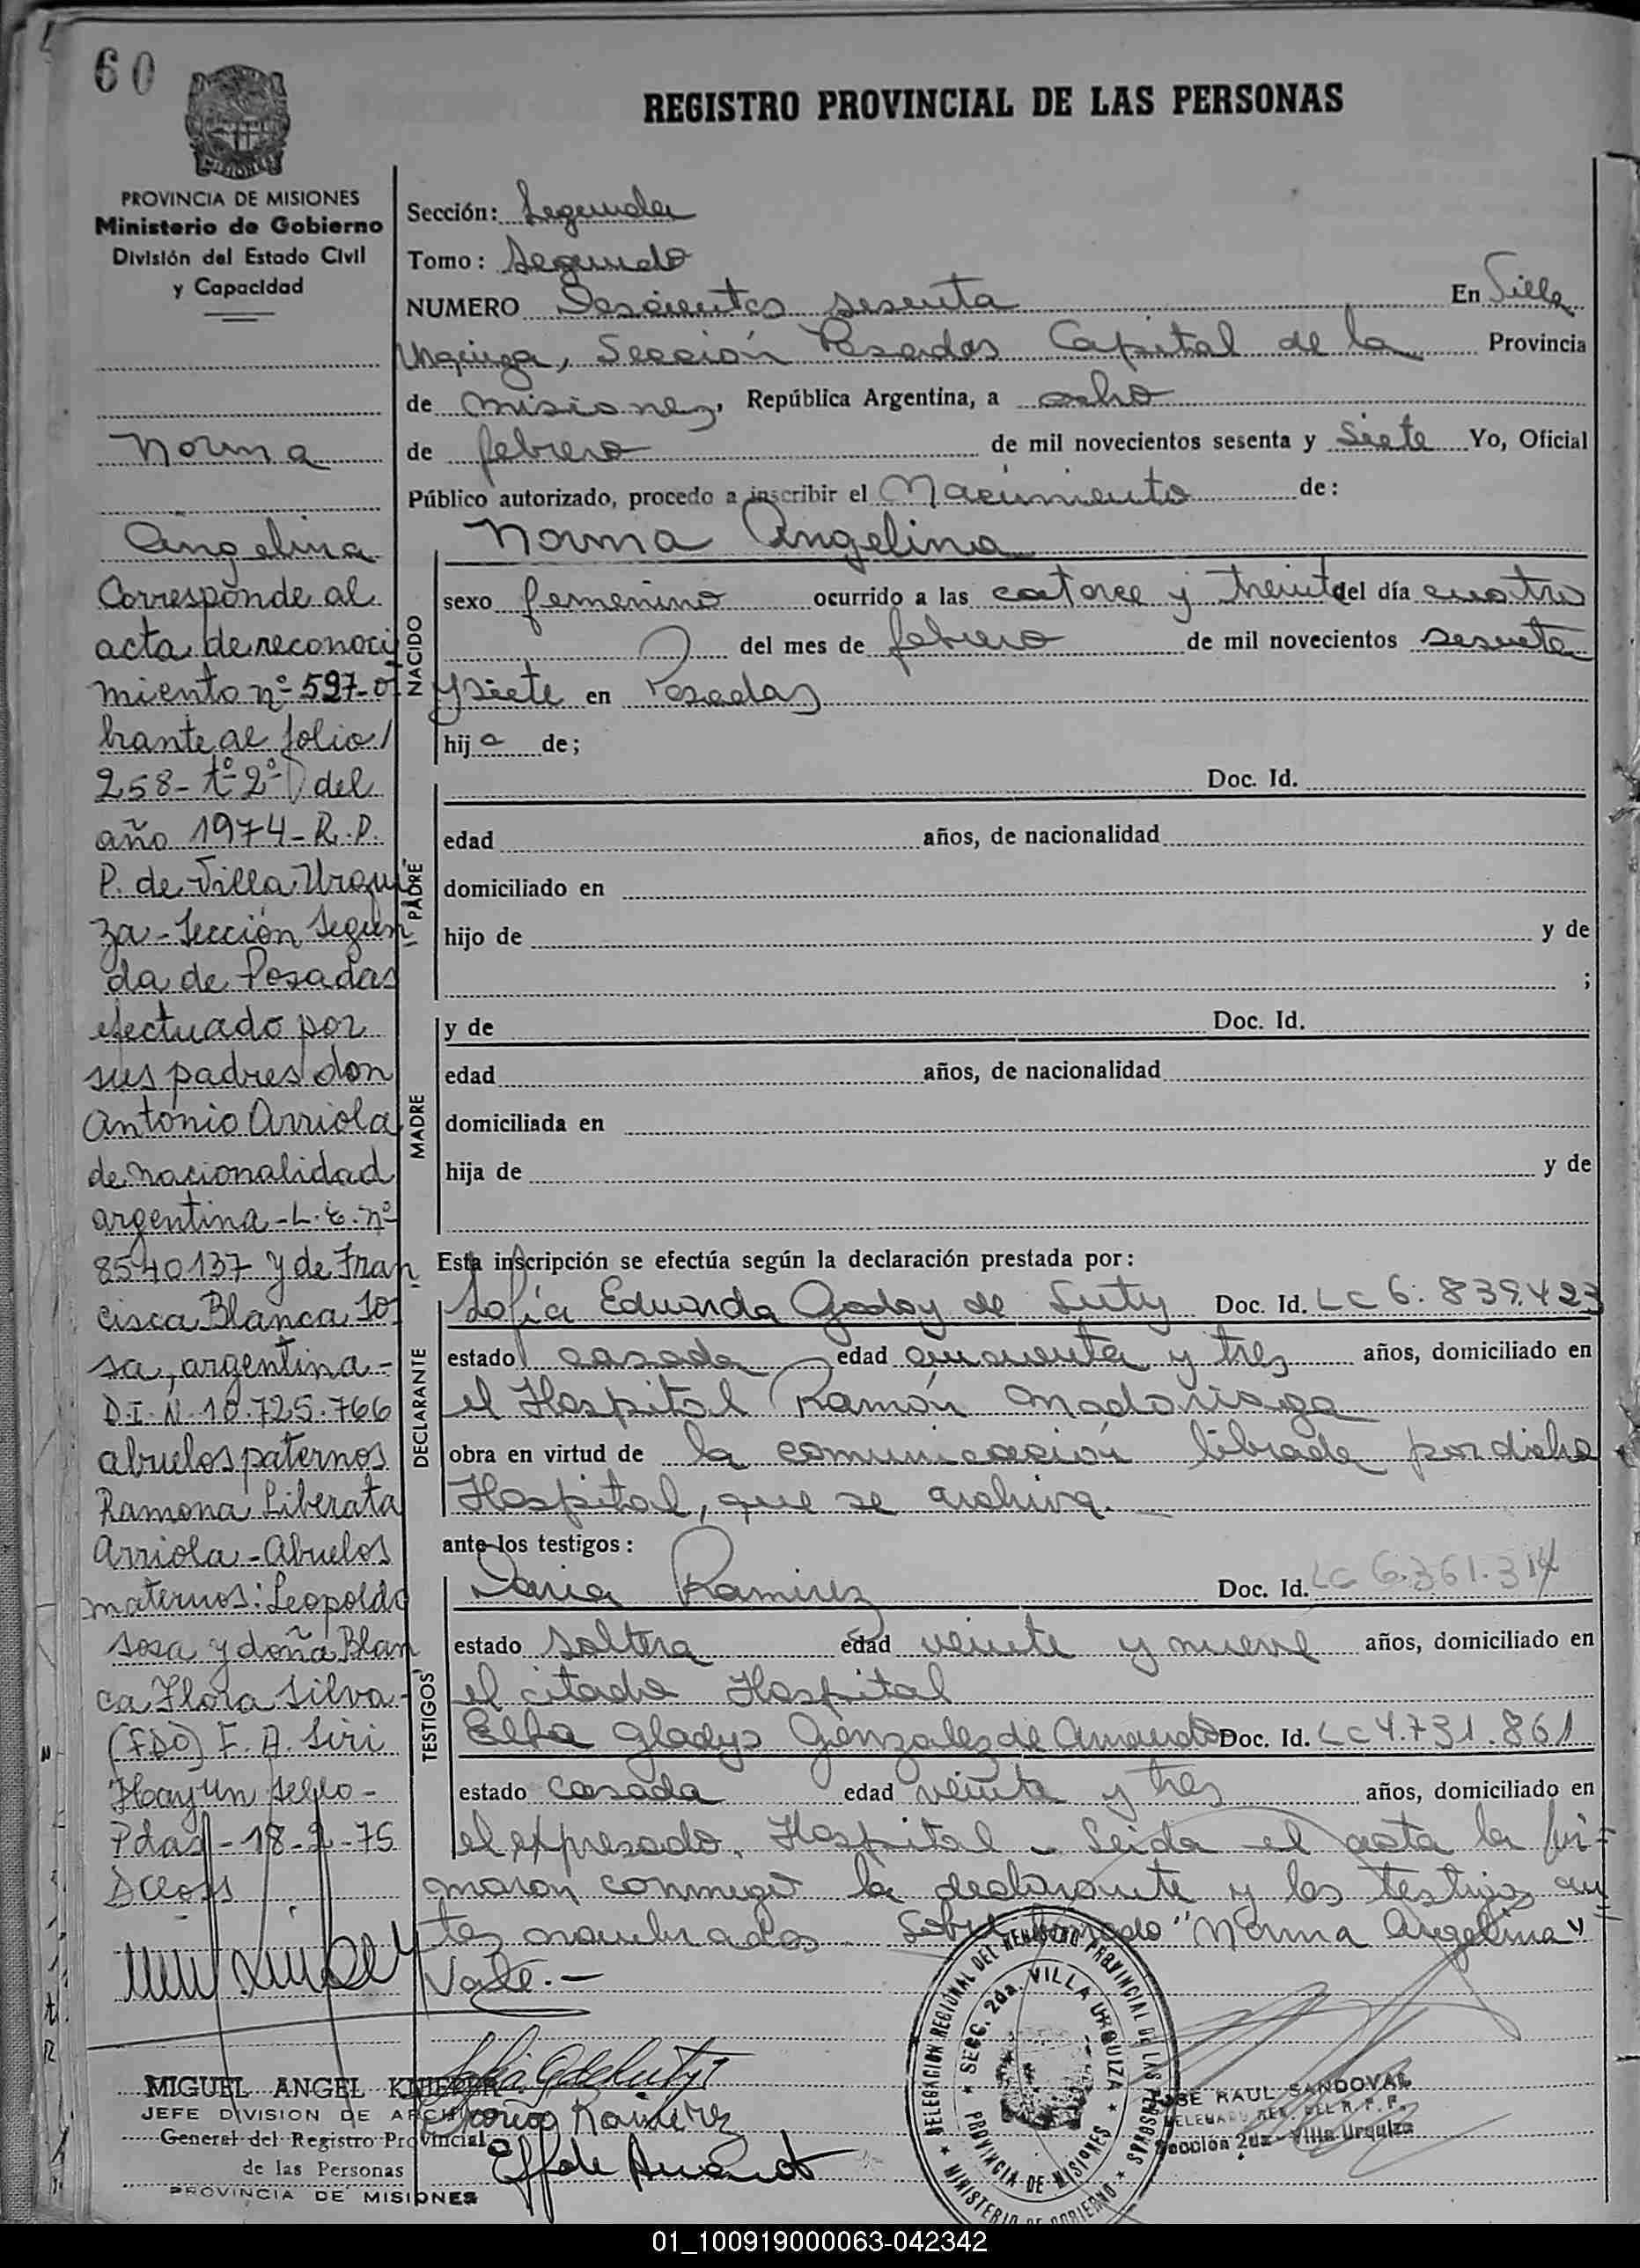 60
REGISTRO PROVINCIAL DE LAS PERSONAS
MISIONES
PROVINCIA DE MISIONES
Ministerio de Gobierno
División del Estado Civil
y Capacidad
Norma
Angelina
Corresponde al
acta de reconoci
miento nº 597-o
brante al folio/
258- tº 2º del
año 1974- R. P.
P. de Villa Urqui
za - Sección Segun
da de Posadas
efectuado por
sus padres don
Antonio Arriola
de nacionalidad
argentina - L. E. nº
8540137 y de Fran
cisca Blanca So
sa, argentina -
D.I. N. 10.725.766
abuelos paternos
Ramona Liberata
Arriola - Abuelos
maternos: Leopoldo
Sosa y doña Blan
ca Flora Silva -
(FDO) F. A. Siri
Hay un sello -
Pdas - 18-2-75
MIGUEL ANGEL
JEFE DIVISION DE ARCHIVO
General del Registro Provincial
de las Personas
PROVINCIA DE MISIONES
Sección: Segunda
Tomo: Segundo
NUMERO Doscientos sesenta En Villa
Urquiza, Sección Posadas Capital de la Provincia
de Misiones, República Argentina, a ocho
de febrero de mil novecientos sesenta y Siete Yo, Oficial
Público autorizado, procedo a inscribir el Nacimiento de:
Norma Angelina
NACIDO
sexo femenino ocurrido a las catorce y treinta del día cuatro
del mes de febrero de mil novecientos sesenta
y siete en Posadas
hija de;
PADRE
Doc. Id.
edad años, de nacionalidad
domiciliado en
hijo de y de
;
MADRE
y de Doc. Id.
edad años, de nacionalidad
domiciliada en
hija de y de
Esta inscripción se efectúa según la declaración prestada por:
DECLARANTE
Sofía Eduarda Godoy de Suty Doc. Id. LC 6.839.423
estado casada edad cincuenta y tres años, domiciliado en
el Hospital Ramón Madariaga
obra en virtud de la comunicación librada por dicho
Hospital, que se archiva.
ante los testigos:
TESTIGOS
Daria Ramirez Doc. Id. LC 6.361.314
estado soltera edad veinte y nueve años, domiciliado en
el citado Hospital
Elba Gladys Gonzalez de Doc. Id. LC 4.731.861
estado casada edad veinte y tres años, domiciliado en
el expresado Hospital - Leida el acta la fir=
maron conmigo la declarante y los testigos an=
tes nombrados. Sobre borrado "Norma Angelina"
Vale.-
DELEGACION REGIONAL DEL REGISTRO PROVINCIAL DE LAS PERSONAS
SECC. 2da. VILLA URQUIZA
PROVINCIA DE MISIONES
MINISTERIO DE GOBIERNO
JOSE RAUL SANDOVAL
DELEGADO REG. DEL R. P. P.
Sección 2da - Villa Urquiza
01_100919000063-042342